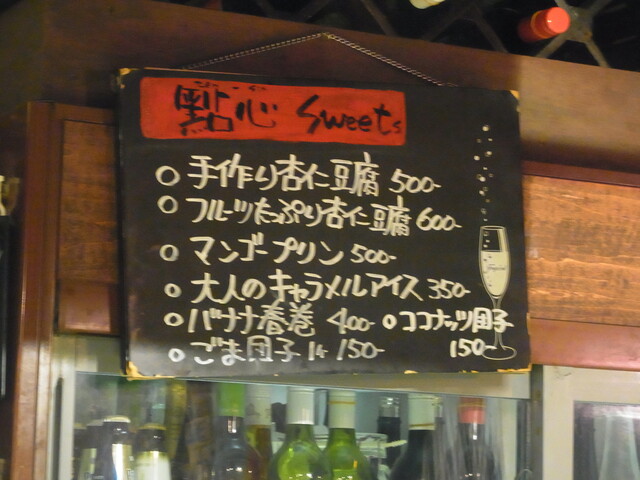 點心 Sweets
○ 手作り杏仁豆腐 500-
○ フルーツたっぷり杏仁豆腐 600-
○ マンゴープリン 500-
○ 大人のキャラメルアイス 350-
○ バナナ春巻 400- ○ ココナッツ団子
○ ごま団子 1ヶ 150- 150-